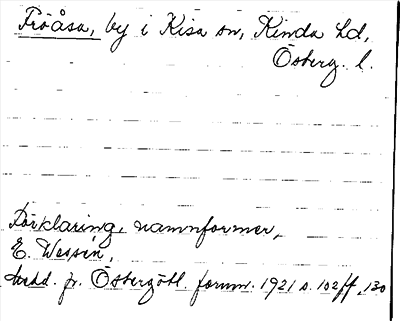 Fröåsa, by i Kisa sn, Kinda hd,
Österg. l.
Förklaring, namnformer,
E. Wessén,
Medd. fr. Östergötl. fornm. 1921 s. 102 ff, 130